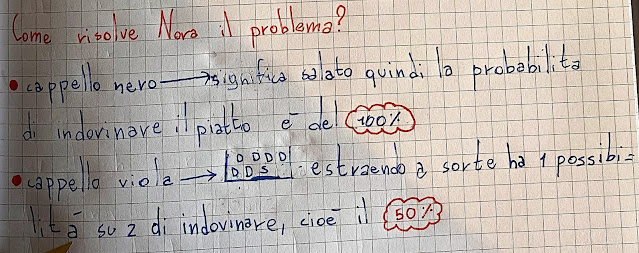 Come risolve Nora il problema?
• cappello nero → significa salato quindi la probabilità
di indovinare il piatto è del 100%
• cappello viola → D D D D
D D S : estraendo a sorte ha 1 possibi=
lità su 2 di indovinare, cioè il 50%